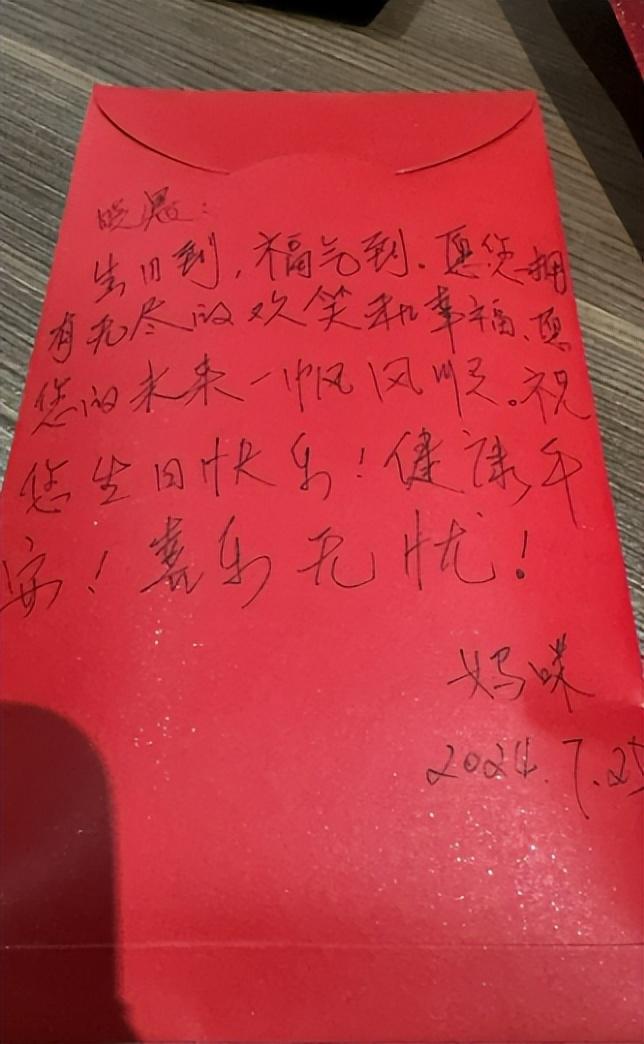 晓愚:
生日到,福气到。愿您拥
有无尽的欢笑和幸福、愿
您的未来一帆风顺。祝
您生日快乐!健康平
安!喜乐无忧!
妈咪
2024.7.25